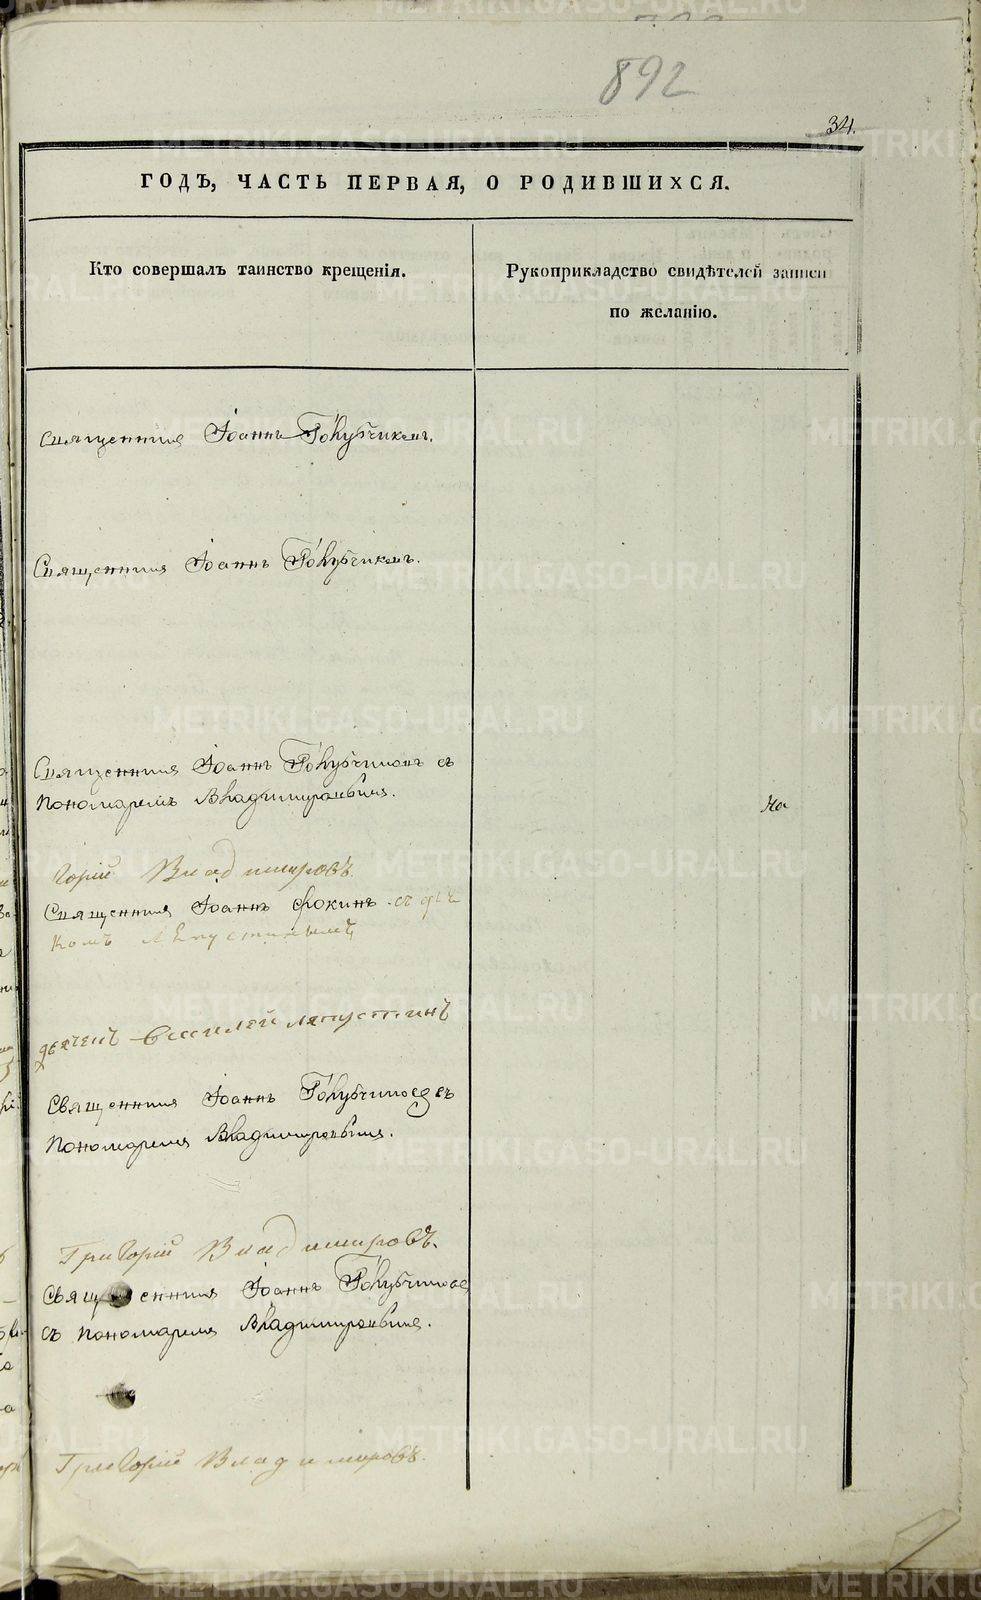 892
34.
ГОДЪ, ЧАСТЬ ПЕРВАЯ, О РОДИВШИХСЯ.
Кто совершалъ таинство крещенія.
Рукоприкладство свидѣтелей записи
по желанію.
Священникъ Іоаннъ Голубчиковъ.
Священникъ Іоаннъ Голубчиковъ.
Священникъ Іоаннъ Голубчиковъ съ
Пономаремъ Владимировымъ.
На
горій Владимировъ.
Священникъ Іоаннъ Фокинъ съ дьяч
комъ Ляпустинымъ
дьячекъ Василей Ляпустинъ
Священникъ Іоаннъ Голубчиковъ съ
Пономаремъ Владимировымъ.
Григорій Владимировъ.
Священникъ Іоаннъ Голубчиковъ
съ Пономаремъ Владимировымъ.
Григорій Владимировъ.
METRIKI.GASO-URAL.RU